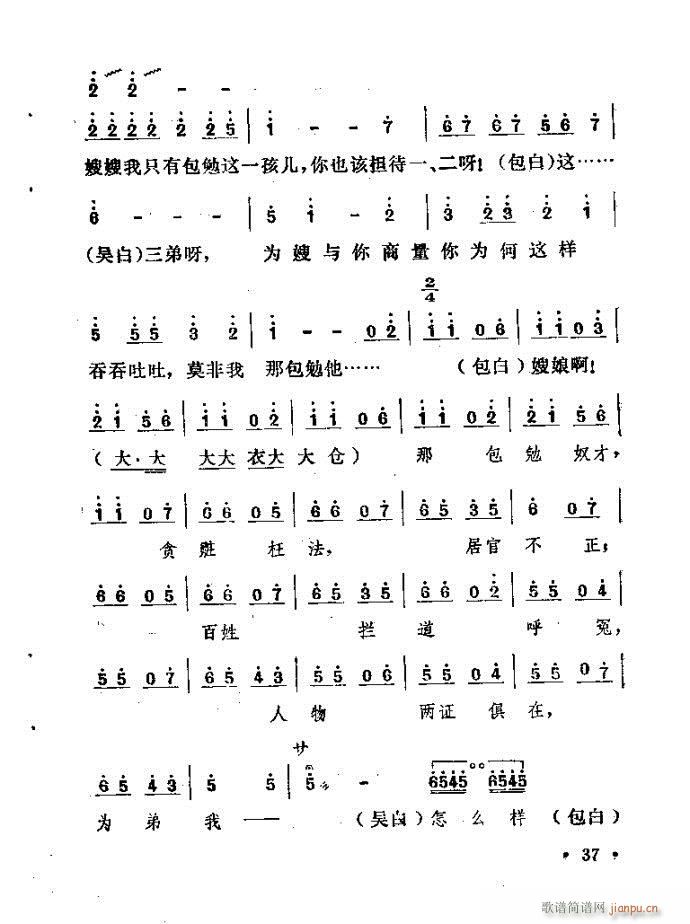 2̇ 2̇ - -
2̇ 2̇ 2̇ 2̇ 2̇ 2̇ 5̇ | 1̇ - - 7̇ | 6̇ 7̇ 6̇ 7̇ 5̇ 6̇ 7̇ |
嫂嫂我只有包勉这一孩儿，你也该担待一、二呀！（包白）这……
6̇ - - - | 5̇ 1̇ - 2̇ | 3̇ 2̇ 3̇ 2̇ 1̇ |
（吴白）三弟呀， 为嫂与你商量你为何这样
2/4
5̇ 5̇ 5̇ 3̇ 2̇ | 1̇ - - 0 2̇ | 1̇ 1̇ 0 6̇ | 1̇ 1̇ 0 3̇ |
吞吞吐吐，莫非我 那包勉他…… （包白）嫂娘啊！
2̇ 1̇ 5̇ 6̇ | 1̇ 1̇ 0 2̇ | 1̇ 1̇ 0 6̇ | 1̇ 1̇ 0 2̇ | 2̇ 1̇ 5̇ 6̇ |
（大·大 大大 衣大 大仓） 那 包 勉 奴才，
1̇ 1̇ 0 7̇ | 6̇ 6̇ 0 5̇ | 6̇ 6̇ 0 7̇ | 6̇ 5̇ 3̇ 5̇ | 6̇ 0 7̇ |
贪 赃 枉 法， 居官 不 正；
6̇ 6̇ 0 5̇ | 6̇ 6̇ 0 7̇ | 6̇ 5̇ 3̇ 5̇ | 6̇ 6̇ 0 2̇ | 5̇ 5̇ 0 7̇ |
百姓 拦 道 呼 冤，
5̇ 5̇ 0 7̇ | 6̇ 5̇ 4̇ 3̇ | 5̇ 5̇ 0 7̇ | 5̇ 5̇ 0 4̇ | 5̇ 5̇ 0 7̇ |
人 物 两证 俱 在，
サ
6̇ 5̇ 4̇ 3̇ | 5̇ 5̇ | 5̇ - 6̇5̇4̇5̇ 6̇5̇4̇5̇
为 弟 我 —— （吴白）怎 么 样 （包白）
• 37 •
歌谱简谱网
jianpu.cn